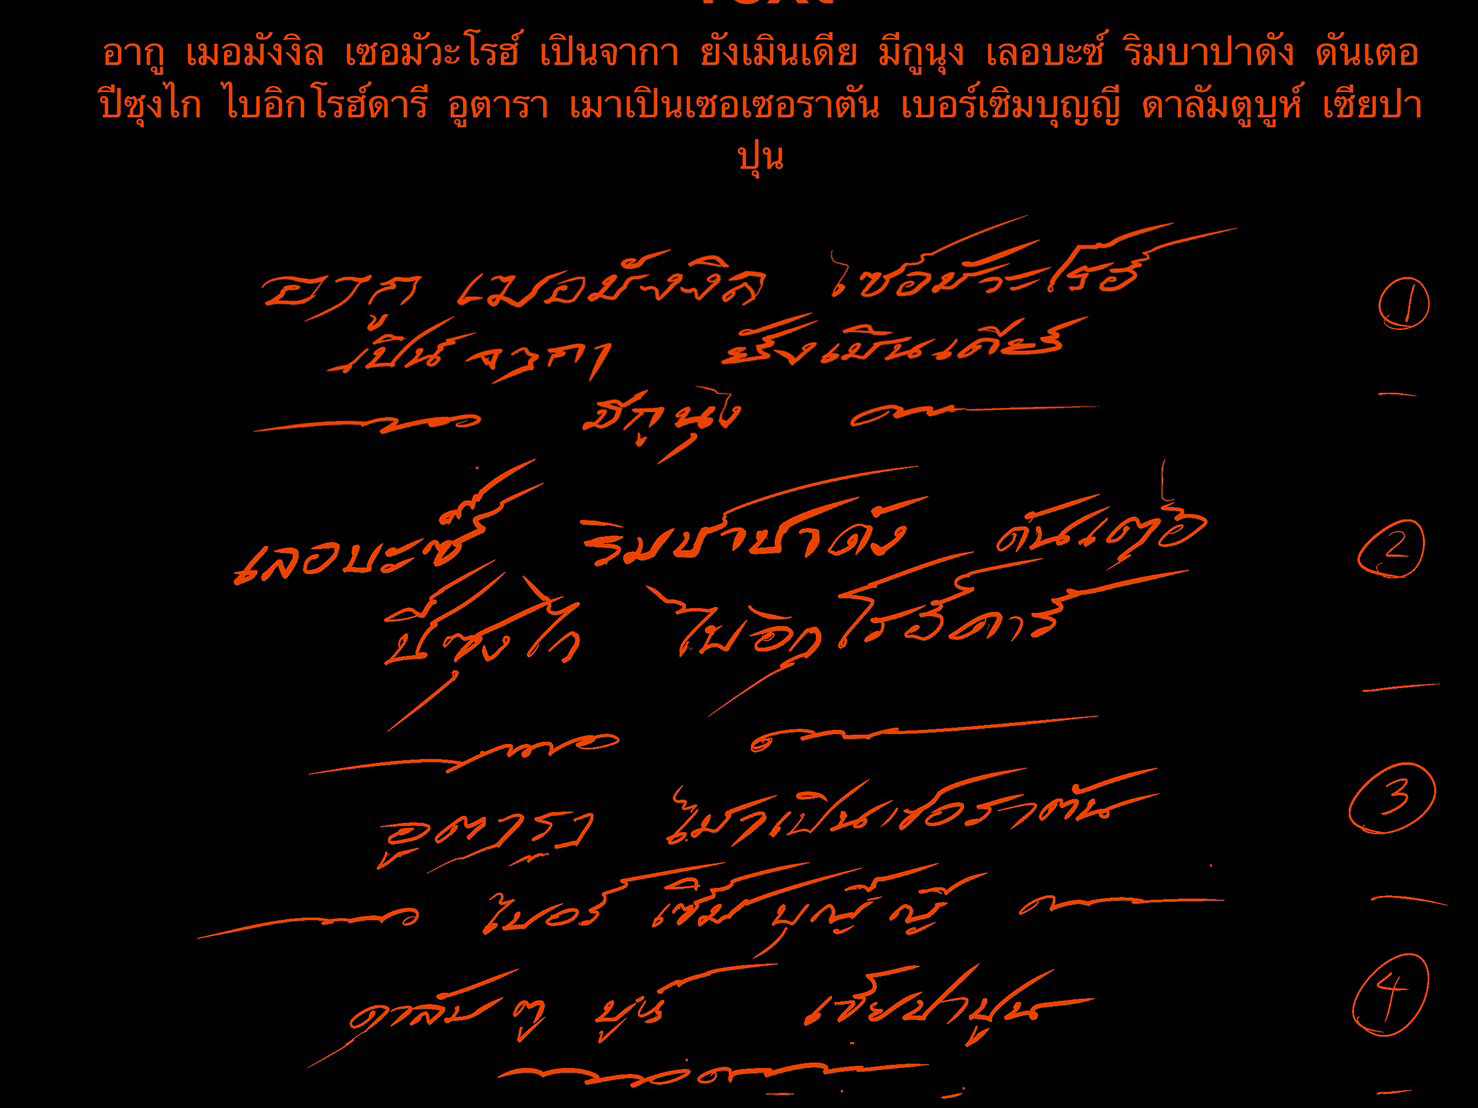 Text
อากู เมอมังงิล เซอมัวะโรฮ์ เปินจากา ยังเมินเดีย มีกูนุง เลอบะซ์ ริมบาปาดัง ดันเตอ
ปีซุงไก ไบอิกโรฮ์ดารี อูตารา เมาเปินเซอเซอราตัน เบอร์เซิมบุญญี ดาลัมตูบูห์ เซียปา
ปุน
อากู เมอมังงิล เซอมัวะโรฮ์ ①
เปินจากา ยังเมินเดีย
มีกูนุง —
เลอบะซ์ ริมบาปาดัง ดันเตอ ②
ปีซุงไก ไบอิกโรฮ์ดารี
—
อูตารา เมาเปินเซอราตัน ③
เบอร์ เซิม บุญญี —
ดาลัม ตู บูห์ เซียปาปุน ④
—